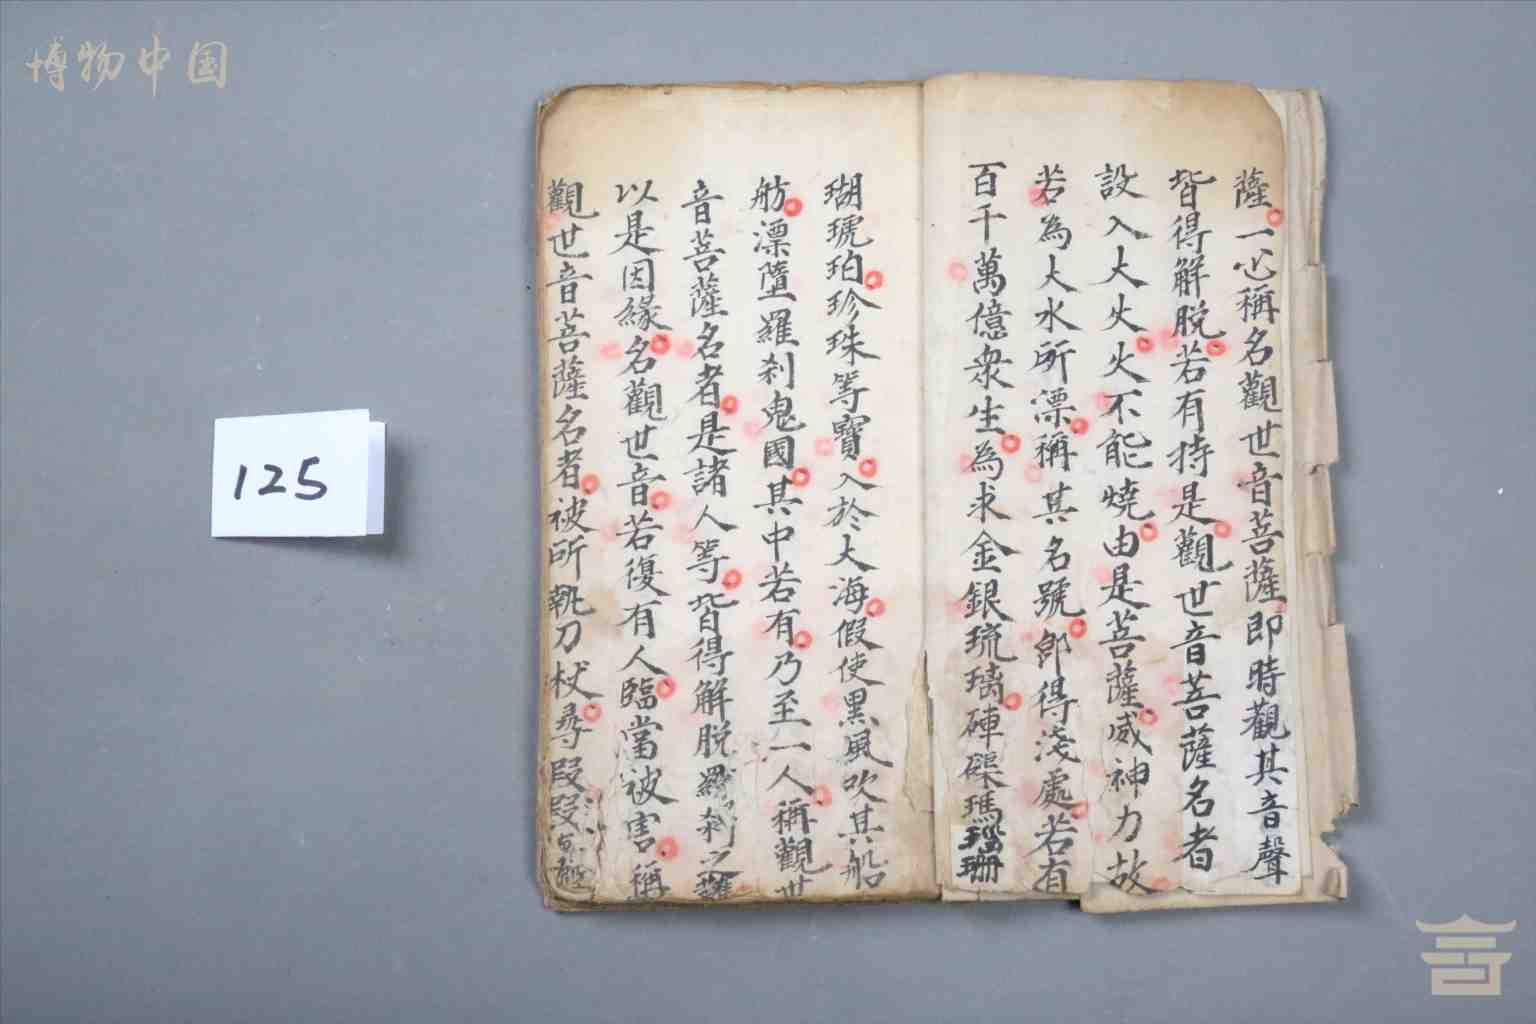 博物中国
125
薩一心稱名觀世音菩薩即時觀其音聲
皆得解脱若有持是觀世音菩薩名者
設入大火火不能燒由是菩薩威神力故
若為大水所漂稱其名號即得淺處若有
百千萬億衆生為求金銀琉璃硨磲瑪瑙珊
瑚琥珀珍珠等寶入於大海假使黑風吹其船
舫漂墮羅刹鬼國其中若有乃至一人稱觀世
音菩薩名者是諸人等皆得解脱羅刹之難
以是因緣名觀世音若復有人臨當被害稱
觀世音菩薩名者被所執刀杖尋段段